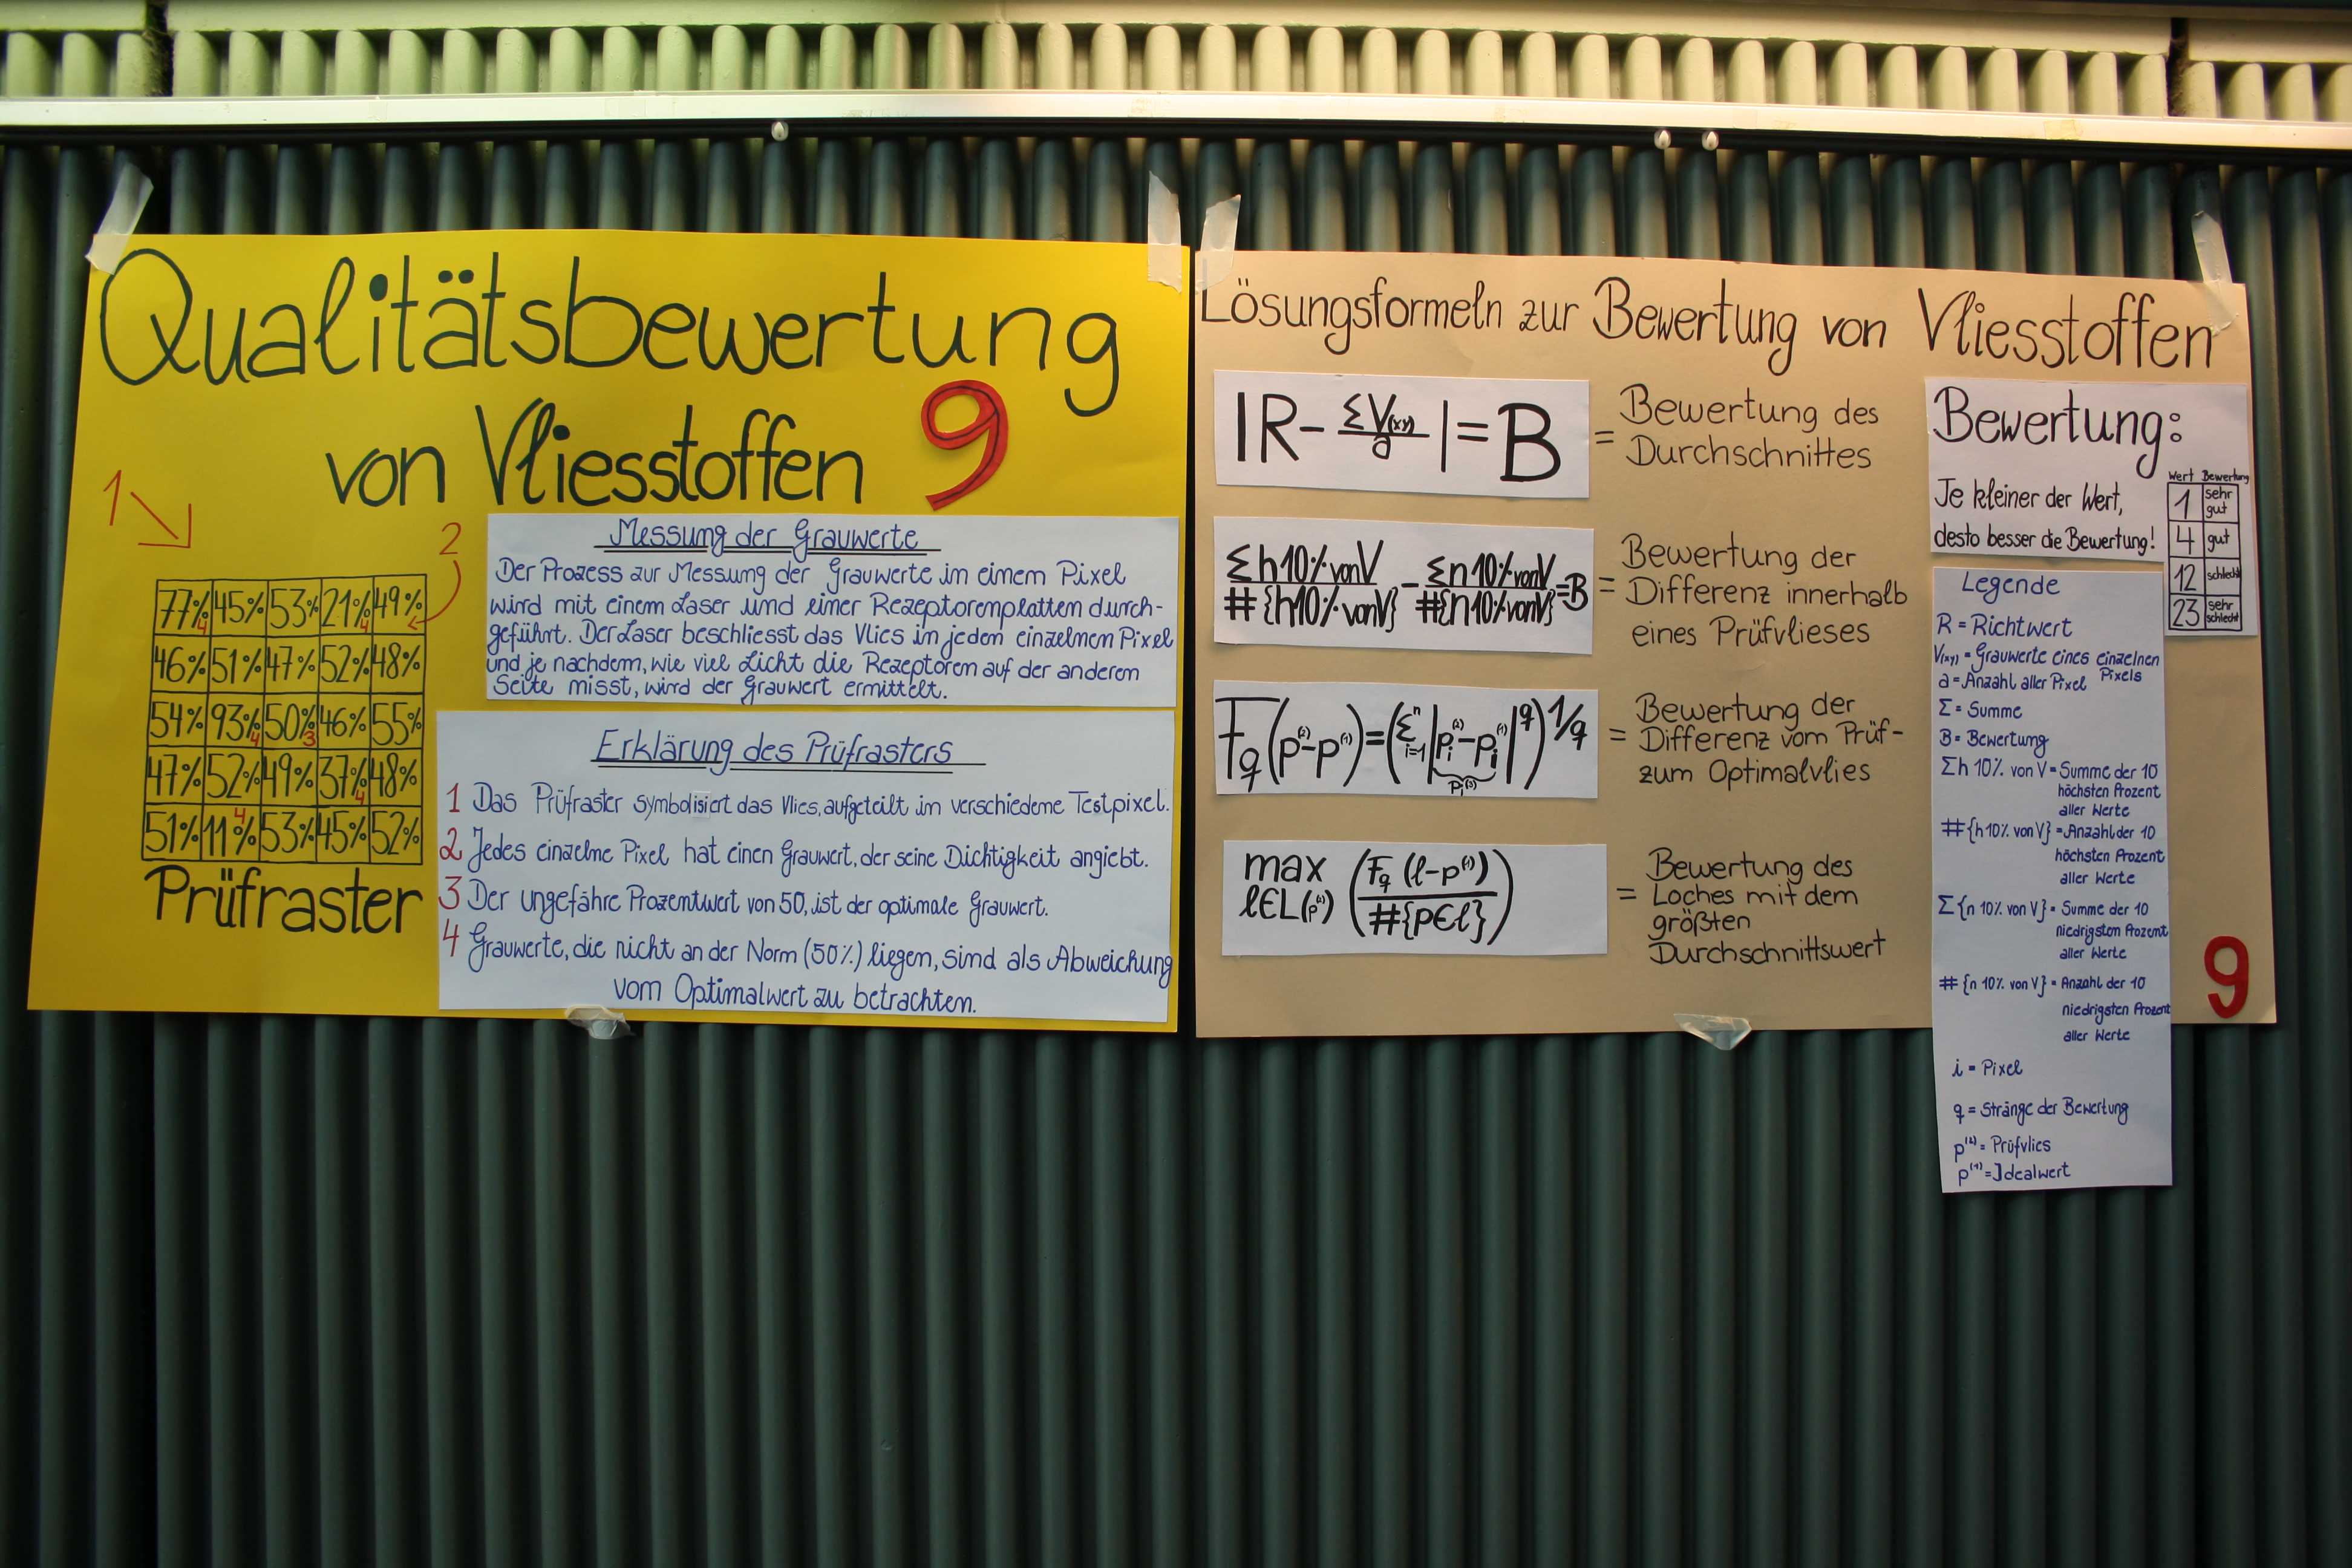 Qualitätsbewertung
von Vliesstoffen 9
1
2
77% 4 45% 53% 21% 4 49%
46% 51% 47% 52% 48%
54% 93% 4 50% 3 46% 55%
47% 52% 49% 37% 4 48%
51% 11% 4 53% 45% 52%
Prüfraster
Messung der Grauwerte
Der Prozess zur Messung der Grauwerte in einem Pixel
wird mit einem Laser und einer Rezeptorenplatten durch-
geführt. Der Laser beschliesst das Vlies in jedem einzelnen Pixel
und je nachdem, wie viel Licht die Rezeptoren auf der anderen
Seite misst, wird der Grauwert ermittelt.
Erklärung des Prüfrasters
1 Das Prüfraster symbolisiert das Vlies, aufgeteilt in verschiedene Testpixel.
2 Jedes einzelne Pixel hat einen Grauwert, der seine Dichtigkeit angiebt.
3 Der ungefähre Prozentwert von 50, ist der optimale Grauwert.
4 Grauwerte, die nicht an der Norm (50%) liegen, sind als Abweichung
vom Optimalwert zu betrachten.
Lösungsformeln zur Bewertung von Vliesstoffen
|R - ΣV(xy) / a | = B
= Bewertung des
Durchschnittes
Σh10% von V / #{h10% von V} - Σn10% von V / #{n10% von V} = B
= Bewertung der
Differenz innerhalb
eines Prüfvlieses
Fq(p⁽²⁾-p⁽¹⁾) = (Σⁿ i=1 |pi⁽²⁾-pi⁽¹⁾|^q)^1/q
pi⁽³⁾
= Bewertung der
Differenz vom Prüf-
zum Optimalvlies
max (Fq (l-p⁽¹⁾) / #{p∈l})
l∈L(p⁽²⁾)
= Bewertung des
Loches mit dem
größten
Durchschnittswert
Bewertung:
Je kleiner der Wert,
desto besser die Bewertung!
Wert Bewertung
1 sehr gut
4 gut
12 schlecht
23 sehr schlecht
Legende
R = Richtwert
V(xy) = Grauwerte eines einzelnen
Pixels
a = Anzahl aller Pixel
Σ = Summe
B = Bewertung
Σh 10% von V = Summe der 10
höchsten Prozent
aller Werte
#{h 10% von V} = Anzahl der 10
höchsten Prozent
aller Werte
Σ{n 10% von V} = Summe der 10
niedrigsten Prozent
aller Werte
#{n 10% von V} = Anzahl der 10
niedrigsten Prozent
aller Werte
i = Pixel
q = Stränge der Bewertung
p⁽²⁾ = Prüfvlies
p⁽¹⁾ = Idealwert
9